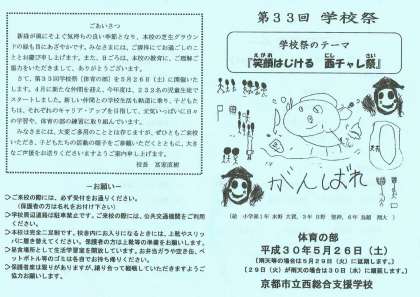 ごあいさつ
新緑が風にそよぐ気持ちの良い季節となり、本校の芝生グラウンド
の緑も目にあざやかです。みなさまには、ご健祥にてお過ごしのこ
とお慶び申し上げます。また、日ごろは、本校の教育に、ご理解ご
協力をいただきまして、ありがとうございます。
さて、第３３回学校祭（体育の部）を５月２６日（土）に開催いた
します。４月に新たな仲間を迎え、今年度は、２３３名の児童生徒で
スタートしました。新しい仲間との学校生活も軌道に乗り、子どもた
ちは、それぞれのキャリア・アップを目指して、元気いっぱいに日々
の学習や、体育の部の練習に取り組んでいます。
みなさまには、大変ご多用のこととは存じますが、ぜひともご来校
いただき、子どもたちの活動の様子をご参観いただくとともに、大き
なご声援をお送りくださいますようご案内申し上げます。
校長
～お願い～
＞ご来校の際には、必ず受付をお通りください。
（保護者の方は名札をお付け下さい）
＞学校周辺道路は駐車禁止です。ご来校の際には、公共交通機関をご利用
ください。
＞本校は完全二足制です。校舎内にお入りになるときには、上靴やスリッ
パに履き替えてください。保護者の方は上靴等の準備をお願いします。
＞昼食場所として生活学習室を開放しています。お弁当ガラや空き缶、ペ
ットボトル等のゴミは各自でお持ち帰りください。
＞保護者席は限りがありますが、譲り合って観戦していただきますようご
協力お願いします。
第３３回 学校祭
学校祭のテーマ
『笑顔はじける 西チャレ祭』
えがお にし さい
がんばれ
体育の部
平成３０年５月２６日（土）
（雨天等の場合は５月２９日（火）に延期します。）
【２９日（火）が雨天の場合は３０日（水）に順延します。】
京都市立西総合支援学校